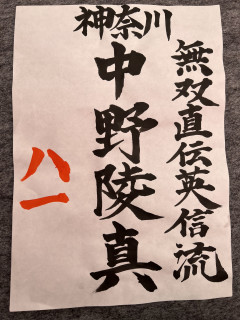 神奈川
無双直伝英信流
中野陵真
八一